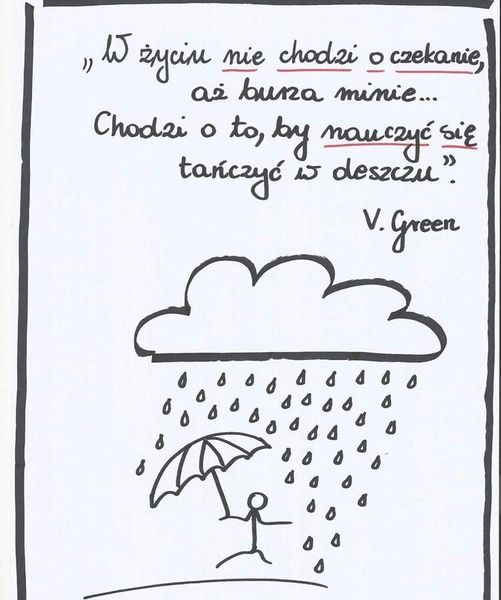 „W życiu nie chodzi o czekanie,
aż burza minie...
Chodzi o to, by nauczyć się
tańczyć w deszczu”.
V. Green